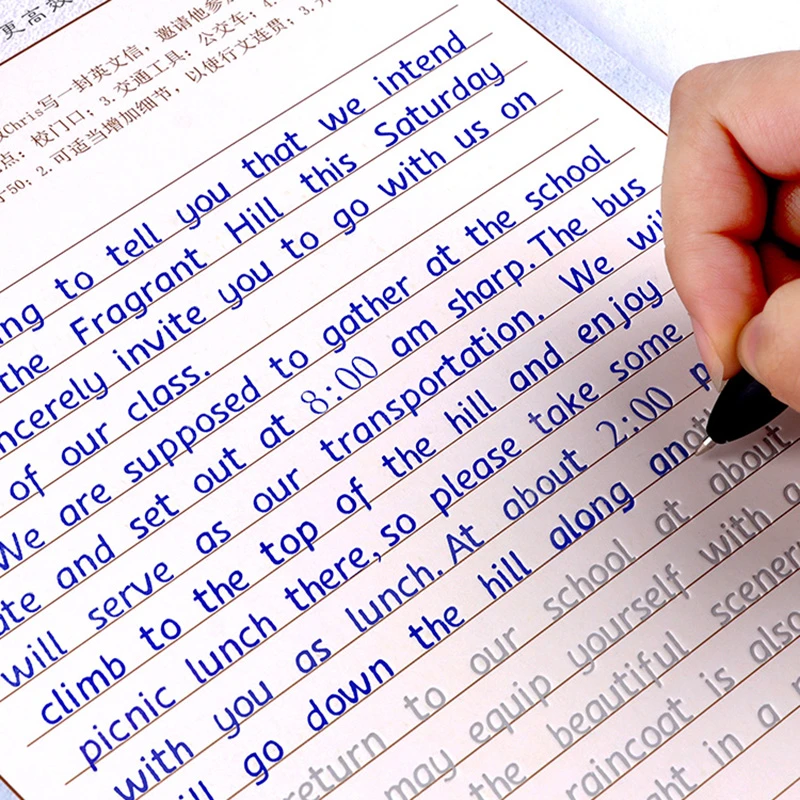 更高效
Chris写一封英文信，邀请他参
点：校门口；3.交通工具：公交车；4.
于50；2.可适当增加细节，以使行文连贯；3.
ng to tell you that we intend
the Fragrant Hill this Saturday
ncerely invite you to go with us on
of our class.
We are supposed to gather at the school
ate and set out at 8:00 am sharp. The bus
will serve as our transportation. We wil
climb to the top of the hill and enjoy
picnic lunch there, so please take some
with you as lunch. At about 2:00 p
ill go down the hill along anoth
return to our school at about
may equip yourself with a
the beautiful scener
raincoat is also
ght in a